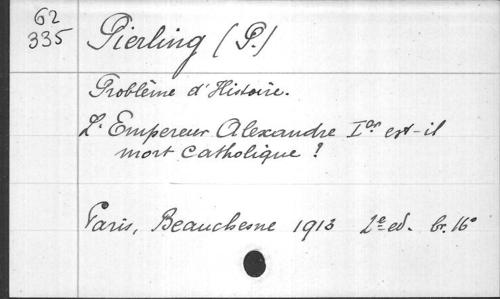 62
335
Pierling (P.)
Problème d'Histoire.
L'Empereur Alexandre Ier est-il
mort catholique ?
Paris, Beauchesne 1913 2e ed. br. 16°